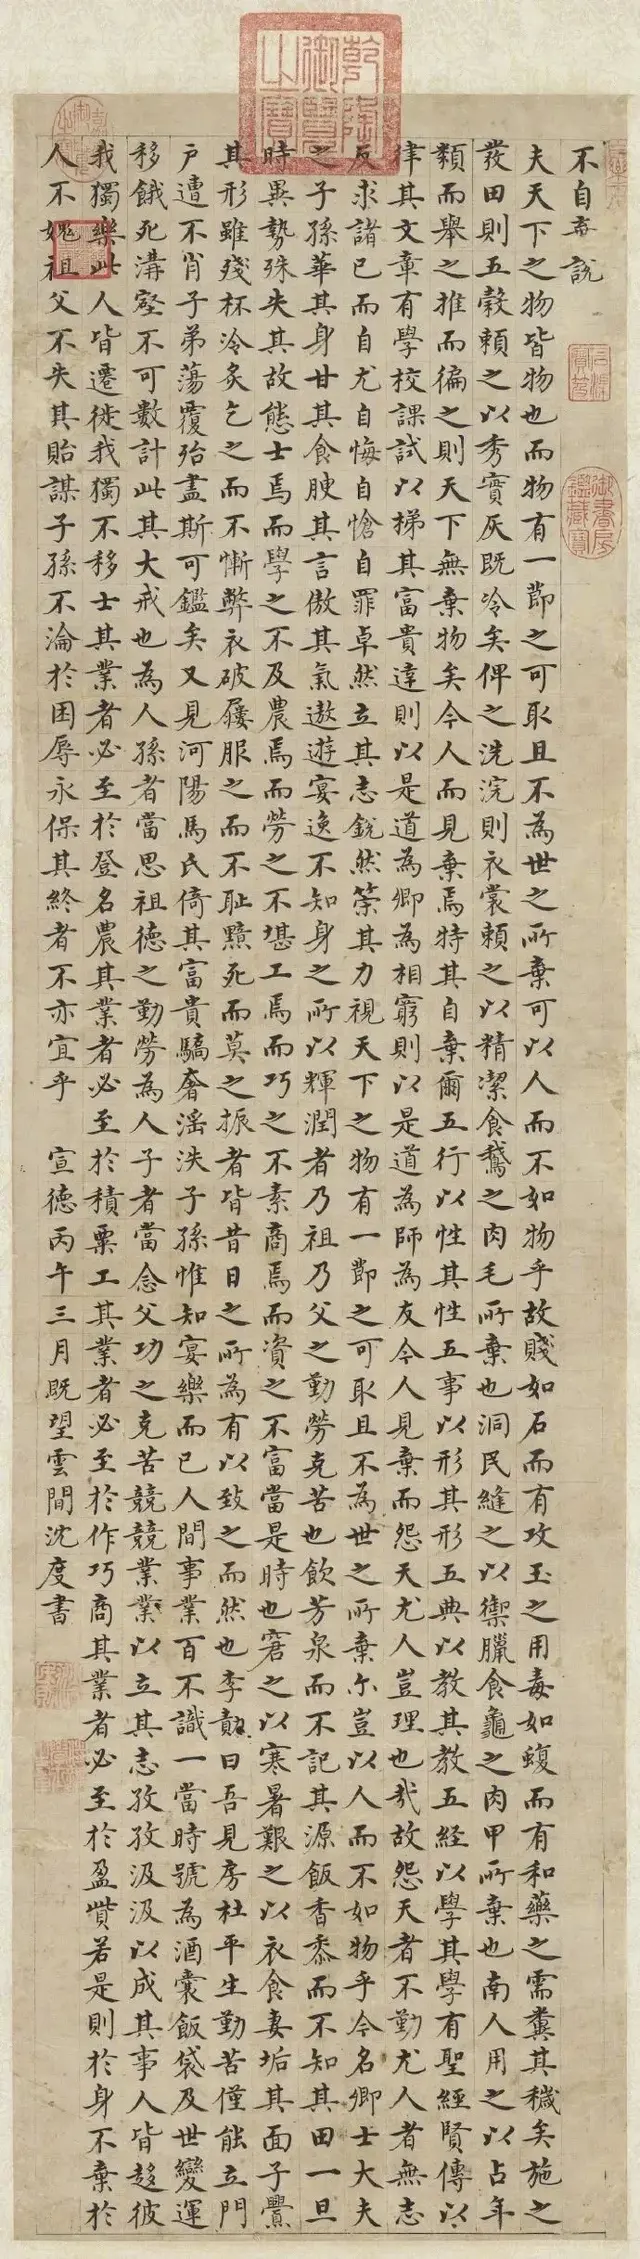 不自弃說
夫天下之物皆物也而物有一節之可取且不為世之所棄可以人而不如物乎故賤如石而有攻玉之用毒如蝮而有和藥之需糞其穢矣施之
發田則五穀賴之以秀實灰既冷矣俾之洗浣則衣裳賴之以精潔食鵞之肉毛所棄也洞民縫之以禦臘食龜之肉甲所棄也南人用之以占年
類而舉之推而徧之則天下無棄物矣今人而見棄焉特其自棄爾五行以性其性五事以形其形五典以教其教五經以學其學有聖經賢傳以
律其文章有學校課試以梯其富貴達則以是道為卿為相窮則以是道為師為友今人見棄而怨天尤人豈理也哉故怨天者不勤尤人者無志
反求諸已而自尤自悔自愴自罪卓然立其志銳然策其力視天下之物有一節之可取且不為世之所棄尒豈以人而不如物乎今名卿士大夫
之子孫華其身甘其食腴其言傲其氣遨遊宴逸不知身之所以輝潤者乃祖乃父之勤勞克苦也飲芳泉而不記其源飯香黍而不知其田一旦
時異勢殊失其故態士焉而學之不及農焉而勞之不堪工焉而巧之不素商焉而資之不富當是時也窘之以寒暑艱之以衣食妻垢其面子釁
其形雖殘杯冷炙乞之而不慚弊衣破屨服之而不耻黯死而莫之振者皆昔日之所為有以致之而然也李勣曰吾見房杜平生勤苦僅能立門
戶遭不肖子弟蕩覆殆盡斯可鑑矣又見河陽馬氏倚其富貴驕奢淫泆子孫惟知宴樂而已人間事業百不識一當時號為酒囊飯袋及世變運
移餓死溝壑不可數計此其大戒也為人孫者當思祖德之勤勞為人子者當念父功之克苦兢兢業業以立其志孜孜汲汲以成其事人皆趍彼
我獨樂此人皆遷徙我獨不移士其業者必至於登名農其業者必至於積粟工其業者必至於作巧商其業者必至於盈貲若是則於身不棄於
人不媿祖父不失其貽謀子孫不淪於困辱永保其終者不亦宜乎 宣德丙午三月既望雲間沈度書
乾隆御覽之寶
御書房鑑藏寶